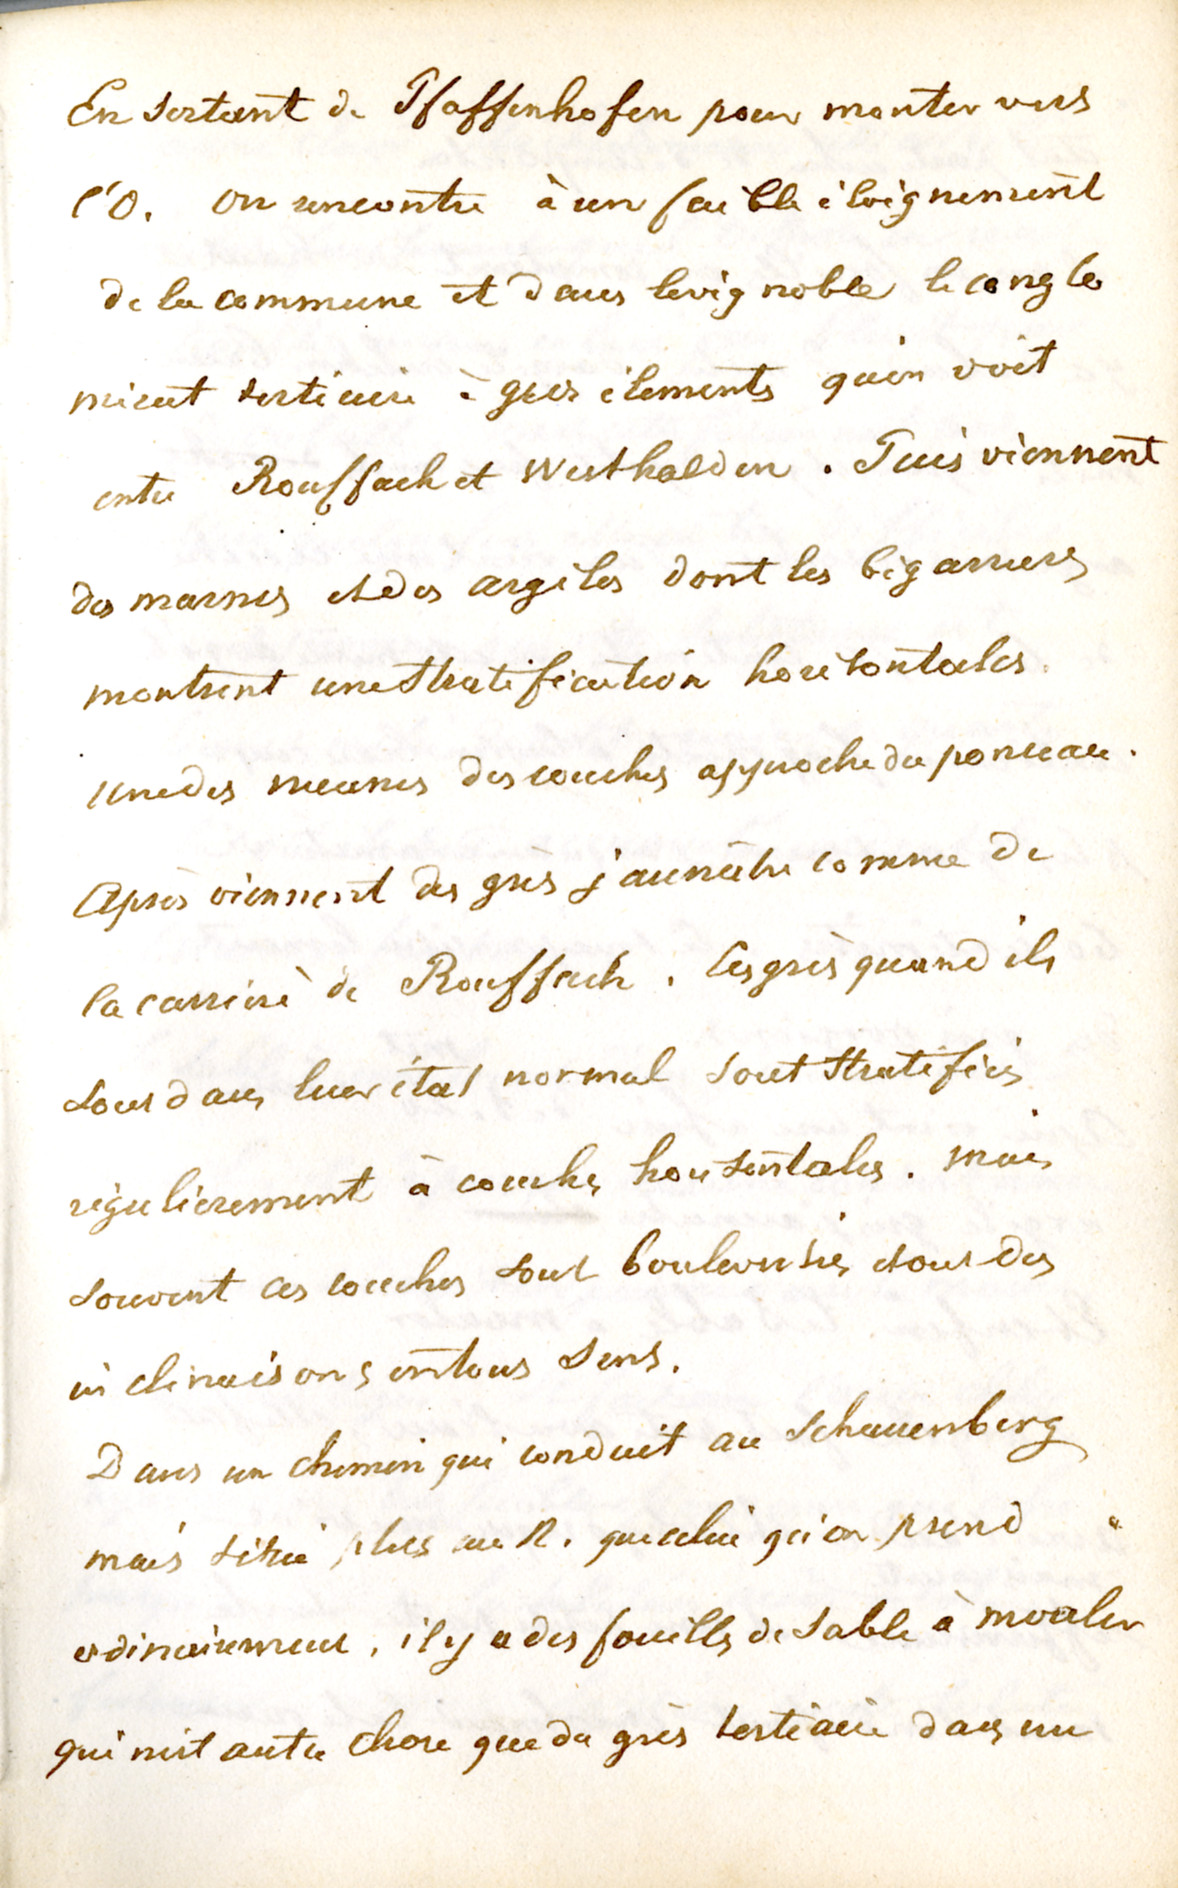 En sortant de Pfaffenhofen pour monter vers
l'O. on rencontre à un faible éloignement
de la commune et dans le vignoble le conglo
mérat tertiaire à gros éléments qu'on voit
entre Rouffach et Westhalden. Puis viennent
des marnes et des argiles dont les bigarrures
montrent une stratification horizontales.
Une des nuances des couches approche du ponceau.
Après viennent des gres jaunâtre comme de
la carrière de Rouffach. Les grès quand ils
sous dans leur état normal sont stratifiés
régulièrement à couches horisontales. Mais
souvent ces couches sont bouleversées et ont des
inclinaisons en tous sens.
Dans un chemin qui conduit au Schauenberg
mais situé plus au N. que celui qu'on prend
ordinairement, il y a des fouilles de sable à mouler
qui n'est autre chose que du grès tertiaire dans un